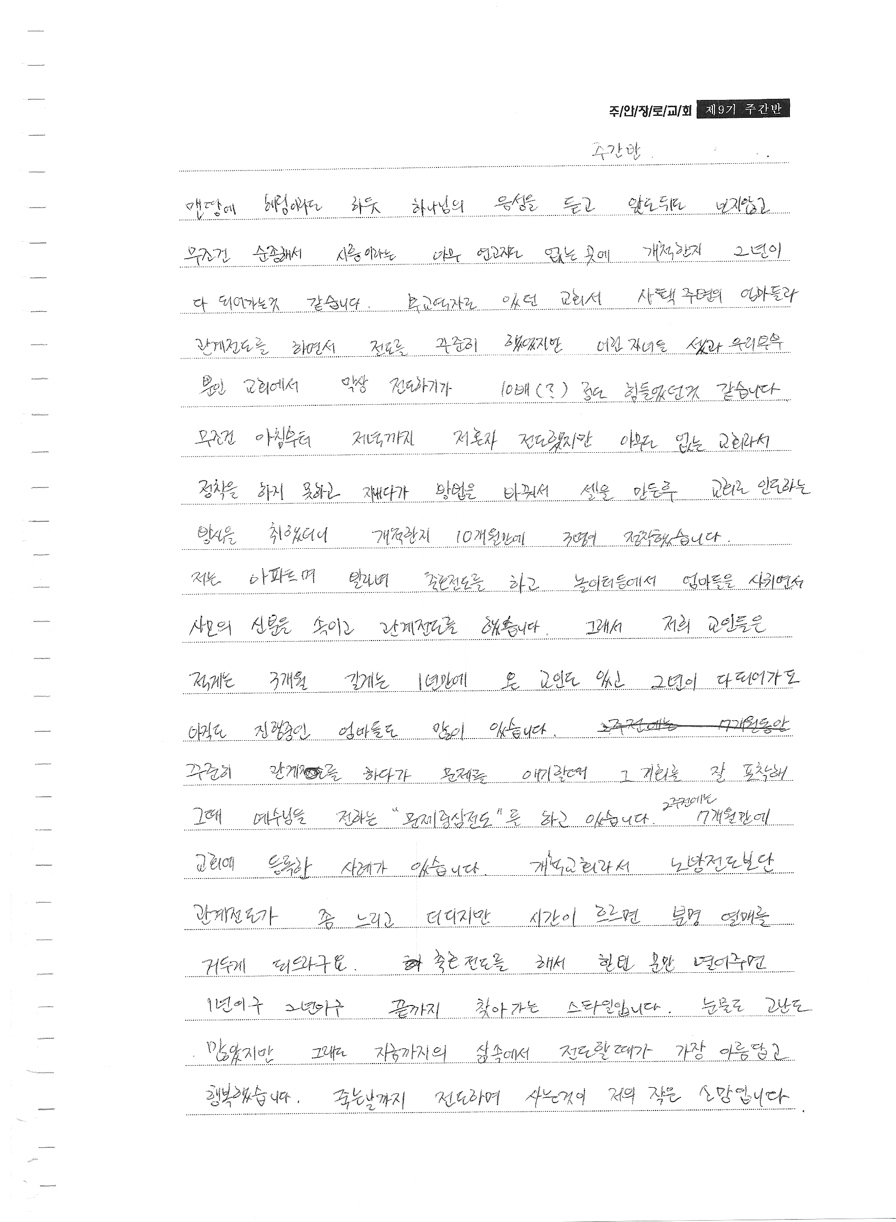 주/안/장/로/교/회 제9기 주간반
주간반
맨땅에 헤딩이라도 하듯 하나님의 음성을 듣고 앞도뒤도 보지않고
무조건 순종해서 시흥이라는 아무 연고지도 없는 곳에 개척한지 2년이
다 되어가는것 같습니다. 부교역자로 있던 교회서 사택 주변의 엄마들과
관계전도를 하면서 전도를 꾸준히 했었지만 어린 자녀들 셋과 우리부부
뿐인 교회에서 막상 전도하기가 10배(?) 정도 힘들었던것 같습니다
무조건 아침부터 저녁까지 저혼자 전도했지만 아무도 없는 교회라서
정착을 하지 못하고 방법을 바꿔서 셀을 만든후 교회로 인도하는
방식을 취했더니 개척한지 10개월만에 3명이 정착했습니다.
저는 아파트며 빌라며 축호전도를 하고 놀이터등에서 엄마들을 사귀면서
사모의 신분을 속이고 관계전도를 했습니다. 그래서 저희 교인들은
적게는 3개월 길게는 1년만에 온 교인도 있고 2년이 다되어가도
아직도 진행중인 엄마들도 많이 있습니다. 2주전에는 7개월동안
꾸준히 관계를 하다가 문제를 얘기할때 그 기회를 잘 포착해
그때 예수님을 전하는 "문제중심전도"를 하고 있습니다. 2주전에는 7개월만에
교회에 등록한 사례가 있습니다. 개척교회라서 노방전도보단
관계전도가 좀 느리고 더디지만 시간이 흐르면 분명 열매를
거두게 되더라구요. 축호전도를 해서 한번 문만 열어주면
1년이구 2년이구 끝까지 찾아가는 스타일입니다. 눈물도 고난도
많았지만 그래도 지금까지의 삶속에서 전도할때가 가장 아름답고
행복했습니다. 죽는날까지 전도하며 사는것이 저의 작은 소망입니다